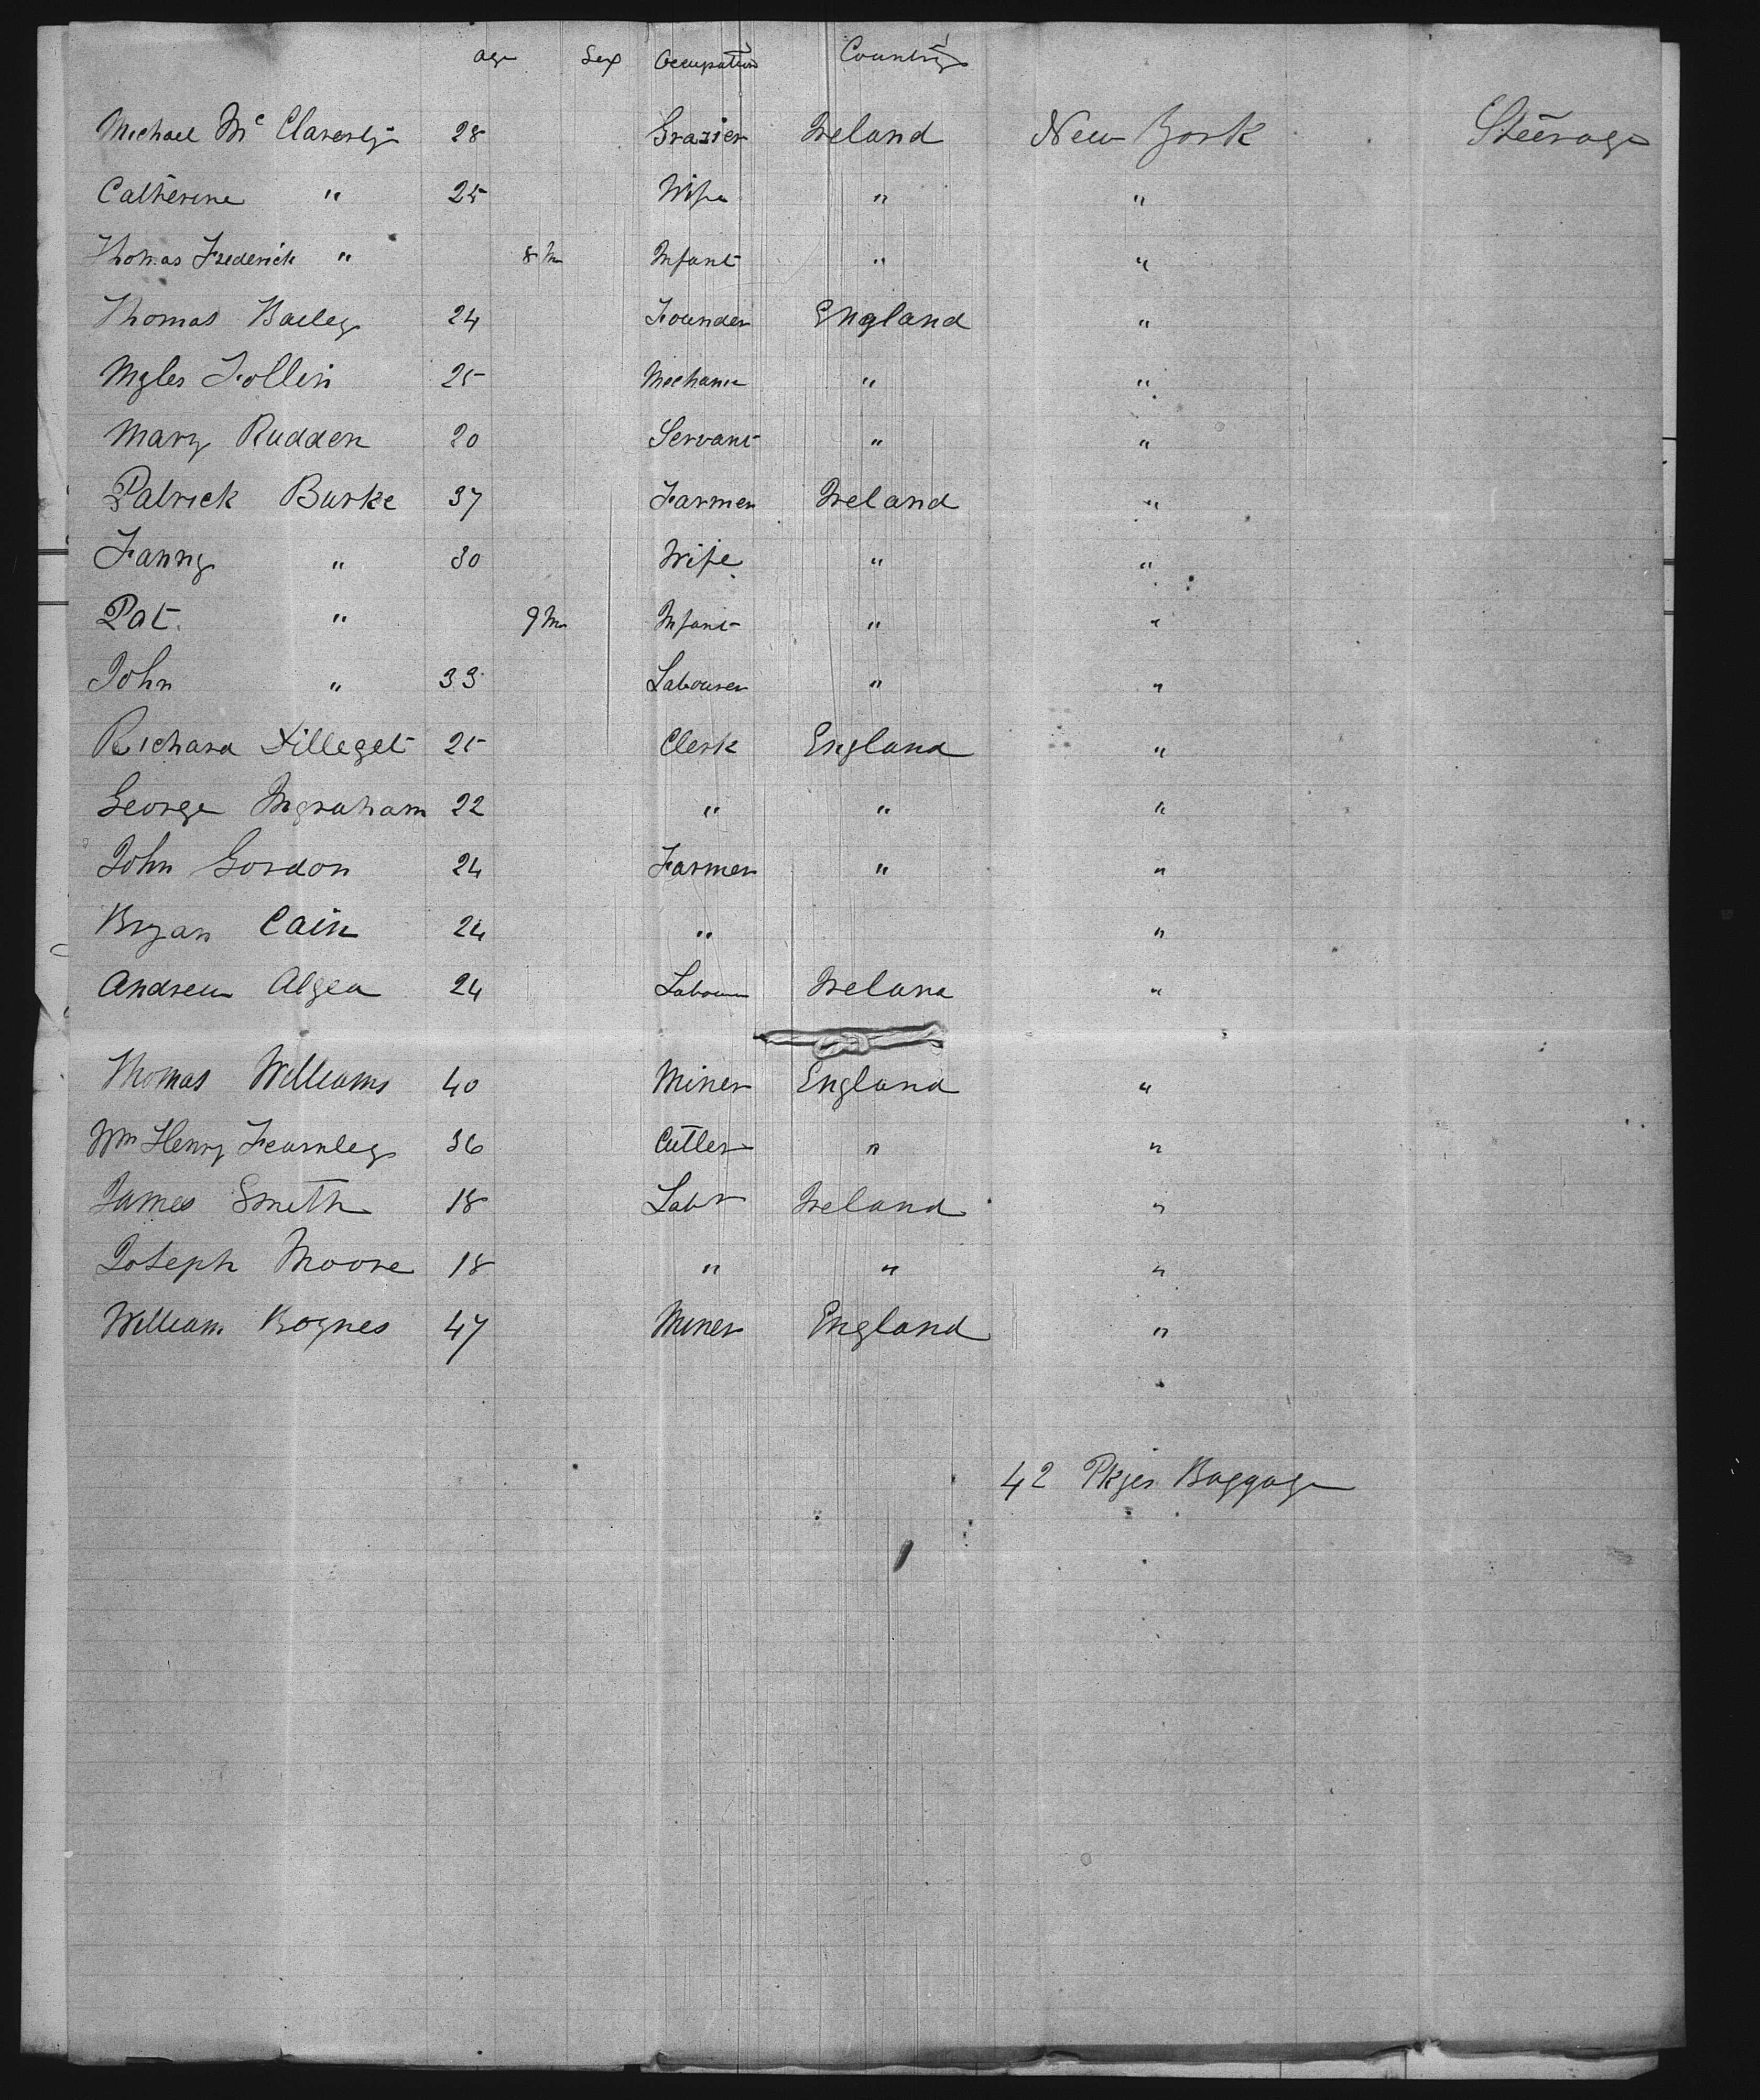 Age Sex Occupation Country
Michael Mc Claverty 28 Grazier Ireland New York Steerage
Catherine " 25 Wife " "
Thomas Frederick " 8 M Infant " "
Thomas Bailey 24 Founder England "
Myles Follin 25 Mechanic " "
Mary Rudden 20 Servant " "
Patrick Burke 37 Farmer Ireland "
Fanny " 30 Wife " "
Pat " 9 M Infant " "
John " 33 Labourer " "
Richard 25 Clerk England "
George Ingraham 22 " " "
John Gordon 24 Farmer " "
Bryan Cain 24 " "
Andrew Algea 24 Labourer Ireland "
Thomas Williams 40 Miner England "
Wm Henry Fearnley 36 Cutler " "
James Smith 18 Labr Ireland "
Joseph Moore 18 " " "
William Boynes 47 Miner England "
42 Pkges Baggage